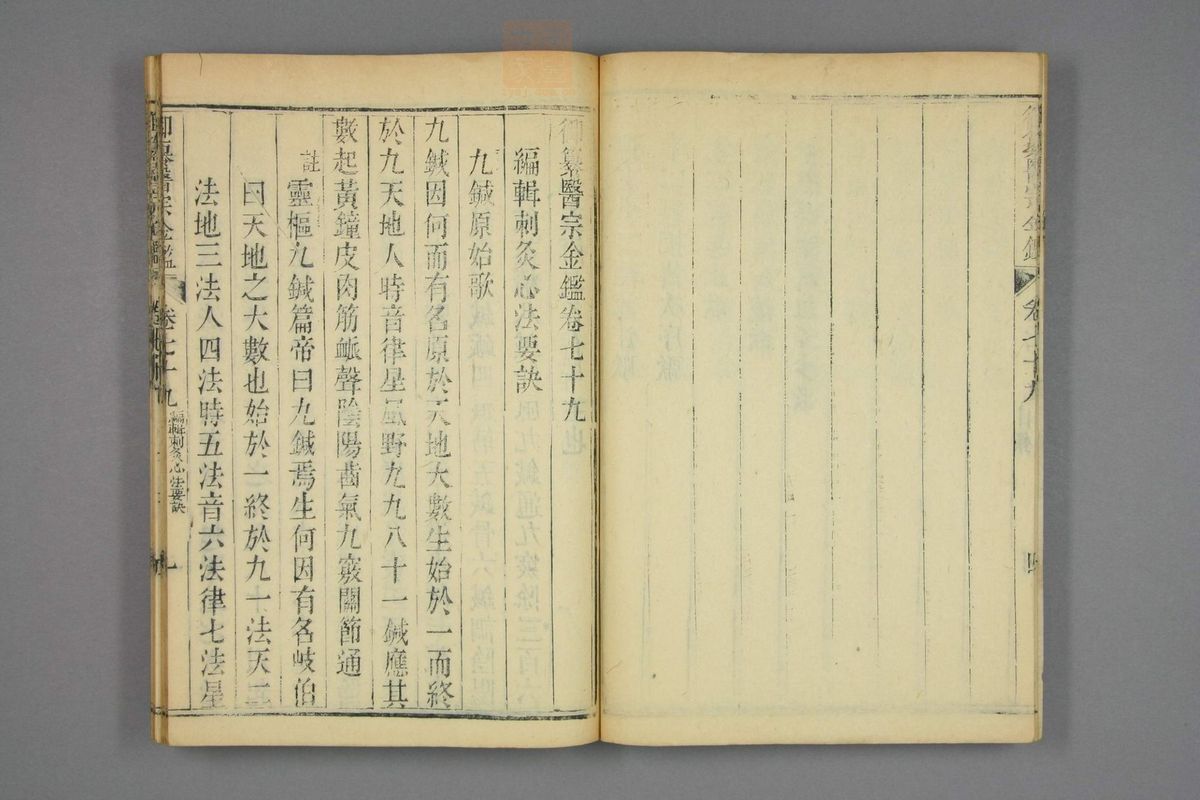 御纂醫宗金鑑卷七十九
編輯刺灸心法要訣
九鍼原始歌
九鍼因何而有名原於天地大數生始於一而終
於九天地人時音律星風野九九八十一鍼應其
數起黃鐘皮肉筋脈聲陰陽齒氣九竅關節通
註
靈樞九鍼篇帝曰九鍼焉生何因有名岐伯
曰天地之大數也始於一終於九一法天二
法地三法人四法時五法音六法律七法星
御纂醫宗金鑑
卷七十九
編輯刺灸心法要訣
一
卷七十九